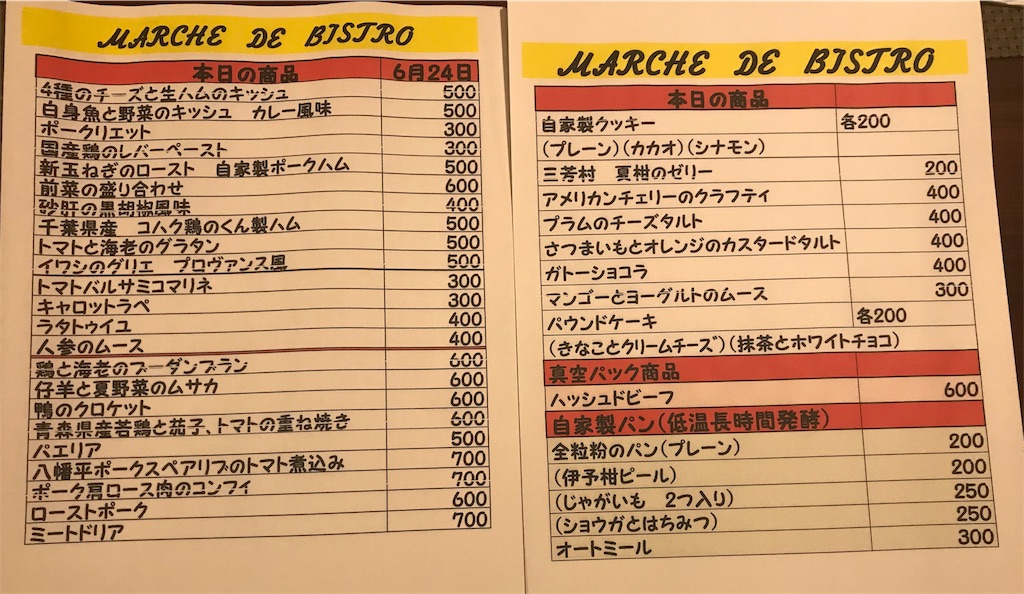 MARCHE DE BISTRO
本日の商品 6月24日
4種のチーズと生ハムのキッシュ 500
白身魚と野菜のキッシュ カレー風味 500
ポークリエット 300
国産鶏のレバーペースト 300
新玉ねぎのロースト 自家製ポークハム 500
前菜の盛り合わせ 600
砂肝の黒胡椒風味 400
千葉県産 コハク鶏のくん製ハム 500
トマトと海老のグラタン 500
イワシのグリエ プロヴァンス風 500
トマトバルサミコマリネ 300
キャロットラペ 300
ラタトゥイユ 400
人参のムース 400
鶏と海老のブーダンブラン 600
仔羊と夏野菜のムサカ 600
鴨のクロケット 600
青森県産若鶏と茄子、トマトの重ね焼き 600
パエリア 500
八幡平ポークスペアリブのトマト煮込み 700
ポーク肩ロース肉のコンフィ 700
ローストポーク 600
ミートドリア 700
MARCHE DE BISTRO
本日の商品
自家製クッキー 各200
(プレーン)(カカオ)(シナモン)
三芳村 夏柑のゼリー 200
アメリカンチェリーのクラフティ 400
プラムのチーズタルト 400
さつまいもとオレンジのカスタードタルト 400
ガトーショコラ 400
マンゴーとヨーグルトのムース 300
パウンドケーキ 各200
(きなことクリームチーズ)(抹茶とホワイトチョコ)
真空パック商品
ハッシュドビーフ 600
自家製パン(低温長時間発酵)
全粒粉のパン(プレーン) 200
(伊予柑ピール) 200
(じゃがいも 2つ入り) 250
(ショウガとはちみつ) 250
オートミール 300